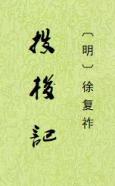 〔明〕徐复祚
投梭記